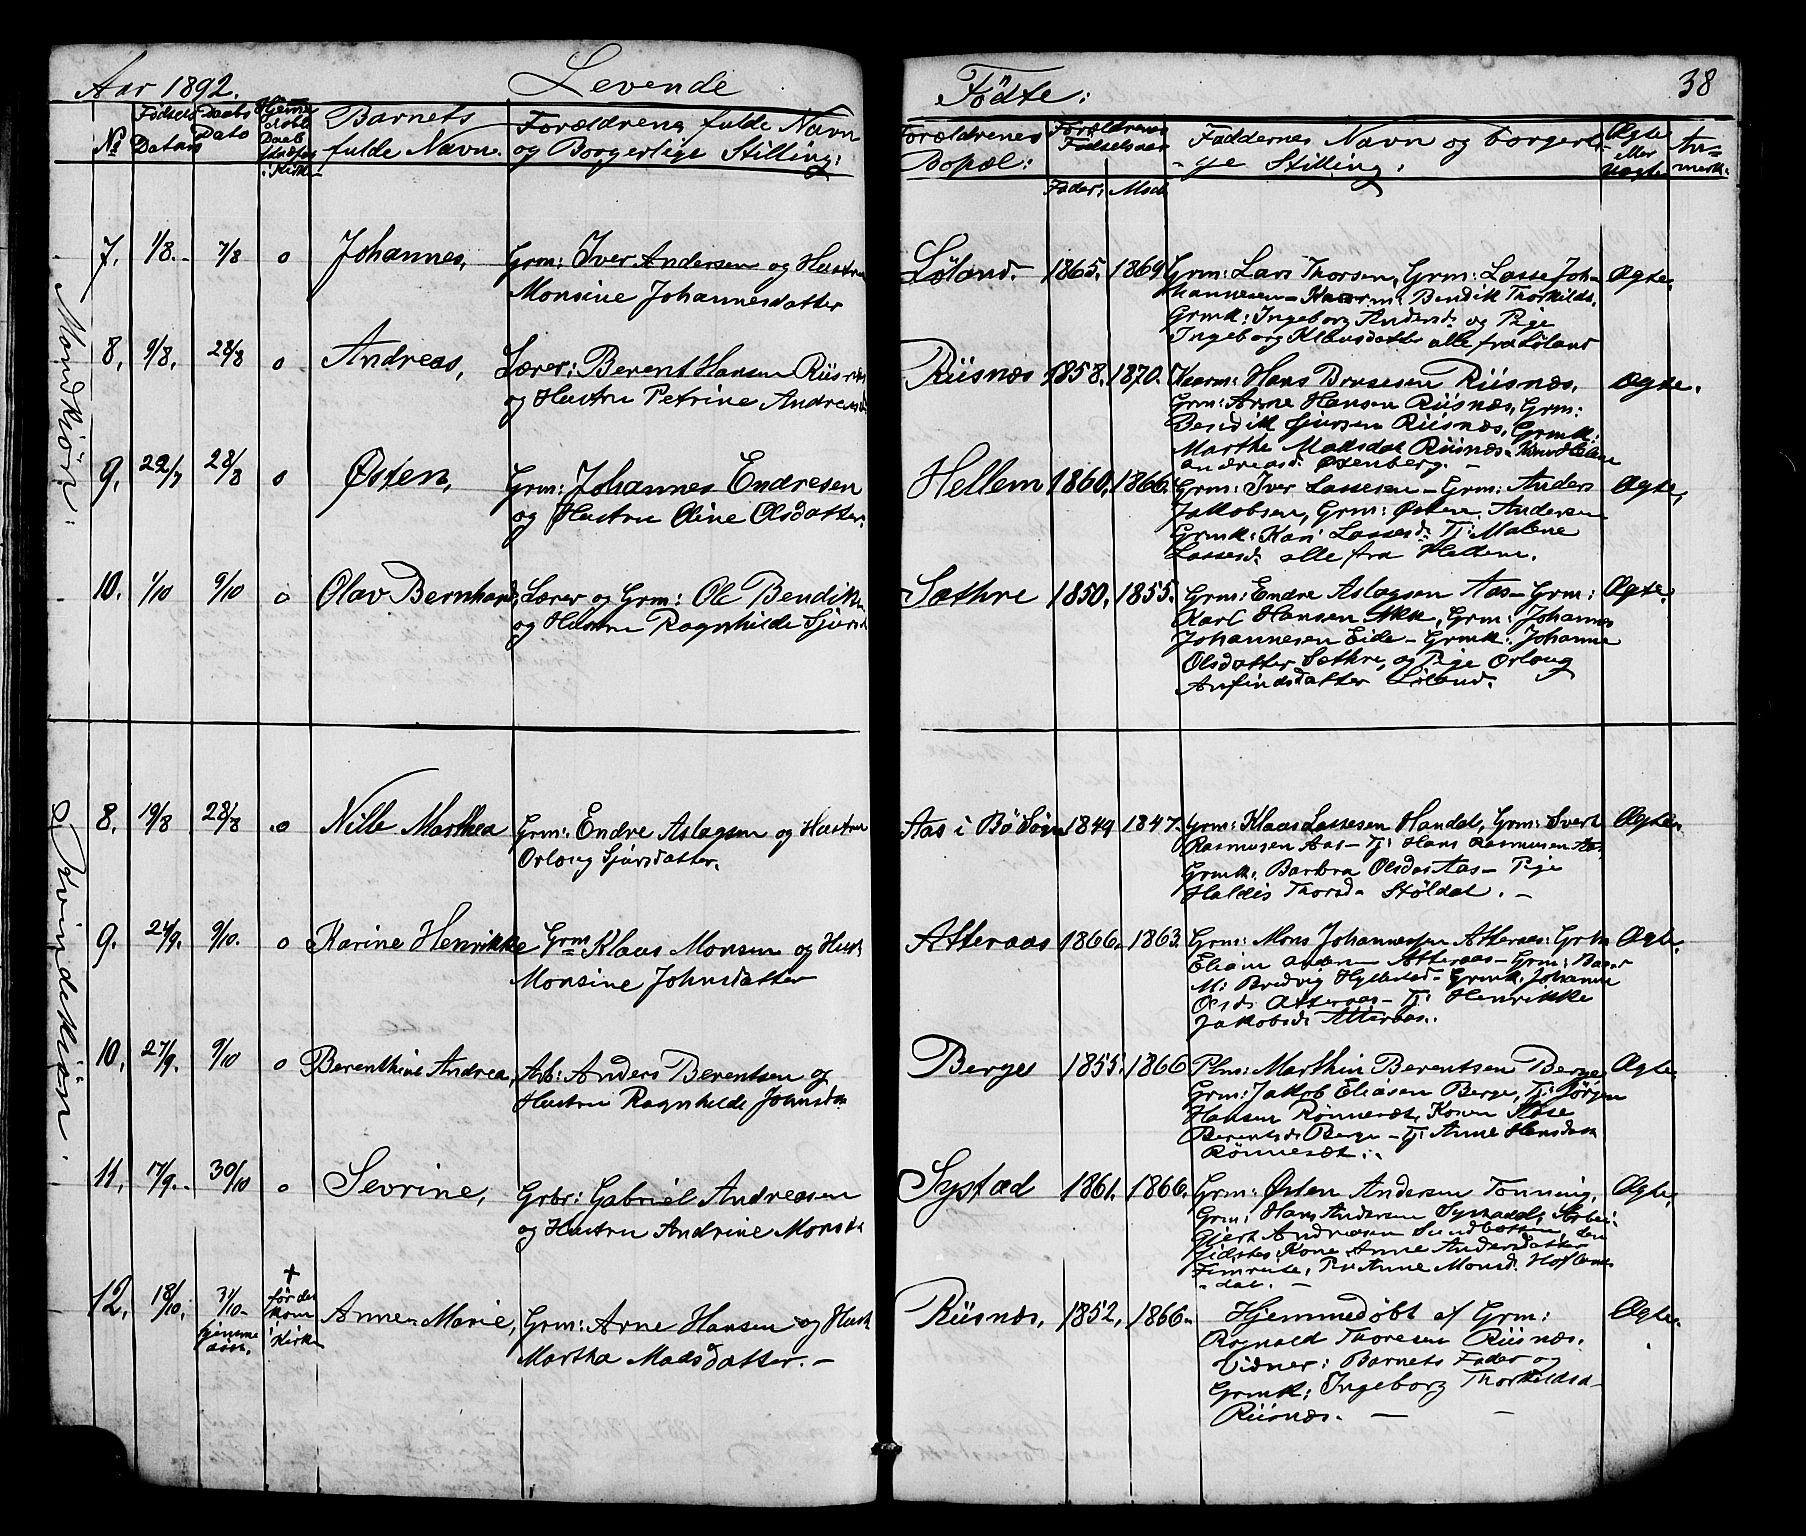 Aar 1892. Levende Fødte: 38
No Fødsels Datum Daabs Dato Barnets fulde Navn. Forældrenes fulde Navn og Borgerlige Stilling: Forældrenes Bopæl: Forældrenes Fødselsaar Fader: Mod: Faddernes Navn og borgerlige Stilling: Ægte eller Uægte Anmerk:
Mandkiön:
7. 1/8. 7/8 o Johannes, Grm: Iver Andersen og Hustru Løland. 1865. 1869 Grm: Lars Thorsen, Grm: Lasse Joh- Ægte.
Monsine Johannesdatter hannesen - Kaarm: Bendik Thorkilds.
Grmk: Ingeborg Andersd. og Pige
Ingeborg Klausdatter alle fra Løland
8. 9/8. 28/8 o Andreas, Lærer: Berent Hansen Riisnæs Riisnæs 1858. 1870. Kaarm: Hans Brusesen Riisnæs. Ægte.
og Hustru Petrine Andreasd. Grm: Arne Hansen Riisnæs, Grm:
Bendik Sjursen Riisnæs, Grmk:
Marthe Madsdat Riisnæs.
Andreasd. Oxenberg. -
9. 22/7 28/8 o Østen, Grm: Johannes Endresen Hellem 1860. 1866. Grm: Iver Lassesen - Grm: Anders Ægte.
og Hustru Oline Olsdatter. Jakobsen, Grm: Østen Andersen
Grmk: Kari Lassesd. Tj: Malene
Lassesd. alle fra Hellem.
10. 1/10 9/10 o Olav Bernhard, Lærer og Grm: Ole Bendiks. Sæthre 1850. 1855. Grm: Endre Aslagsen Aas - Grm: Ægte.
og Hustru Ragnhilde Sjursd. Karl Hansen Akk, Grm: Johannes
Johannesen Eide - Grmk: Johanne
Olsdatter Sæthre, og Pige Orloug
Anfindsdatter Løland.
Kvindekiön.
8. 19/8 28/8 o Nille Marthea Grm: Endre Aslagsen og Hustru Aas i Bö Sogn 1849 1847. Grm: Klaas Lassesen Handal, Grm: Svert Ægte.
Orloug Sjursdatter. Rasmusen Aas - Tj: Hans Rasmusen Aas.
Grmk: Barbra Olsdat Aas - Pige
Haldis Thorsd. Støldal. -
9. 24/9. 9/10. o Karine Henrikke Grm Klaas Monsen og Hust: Atteraas 1866. 1863. Grm: Mons Johannessen Atteraas: Grm Ægte.
Monsine Johnsdatter Elias Anders Atteraas - Grm:
M: Bredvig Hyllestad - Grmk: Johanne
Olsd. Atteraas - Tj: Henrikke
Jakobsd. Atteraas.
10. 27/9. 9/10 o Berenthine Andrea, Arb: Anders Berentsen og Berge 1855. 1866 Plm: Marthin Berentsen Berge, Ægte.
Hustru Ragnhilde Johnsda Grm: Jakob Eliasen Berge, Tj: Jörgen
Hansen Rönnesæt, Konen Aase
Berentsd. Berge - Tj: Anne Hansdat
Rønnesæt.
11. 17/9. 30/10 o Sevrine, Grbr: Gabriel Andreasen Systad 1861. 1866. Grm: Østen Andersen Tonning, Ægte.
og Hustru Andrine Monsda Grm: Hans Andersen Systad, Arbei:
Gjert Andreasen Sundbotten, den
Sidstes Kone Anne Andersdatter
Anne Monsd. Hoflands
dal. -
12. 18/10. 31/10 hjemme döbt. + før det kom i Kirken Anne Marie, Grm: Arne Hansen og Hust Riisnæs. 1852. 1866. Hjemmedøbt af Grm: Ægte.
Martha Madsdatter. - Ragnald Thoresen Riisnæs.
Vidner: Barnets Fader og
Grmk: Ingeborg Thorkildsd-
Riisnæs. -